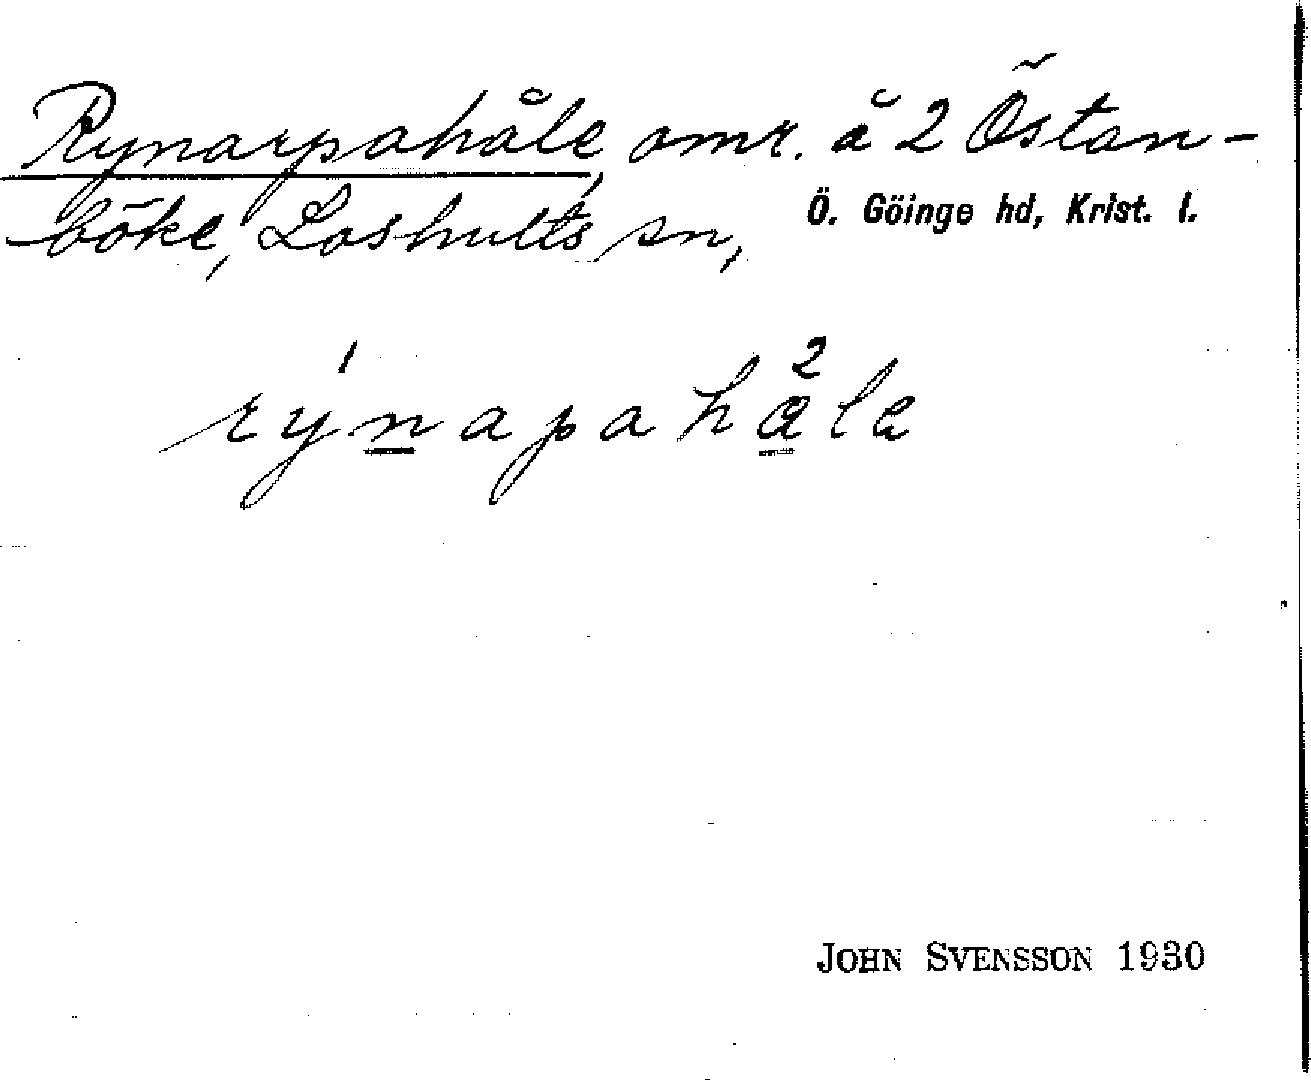 Rynarpahåle, omr. å 2 Östan-
böke, Loshults sn, Ö. Göinge hd, Krist. l.
rýnapahåla
JOHN SVENSSON 1930